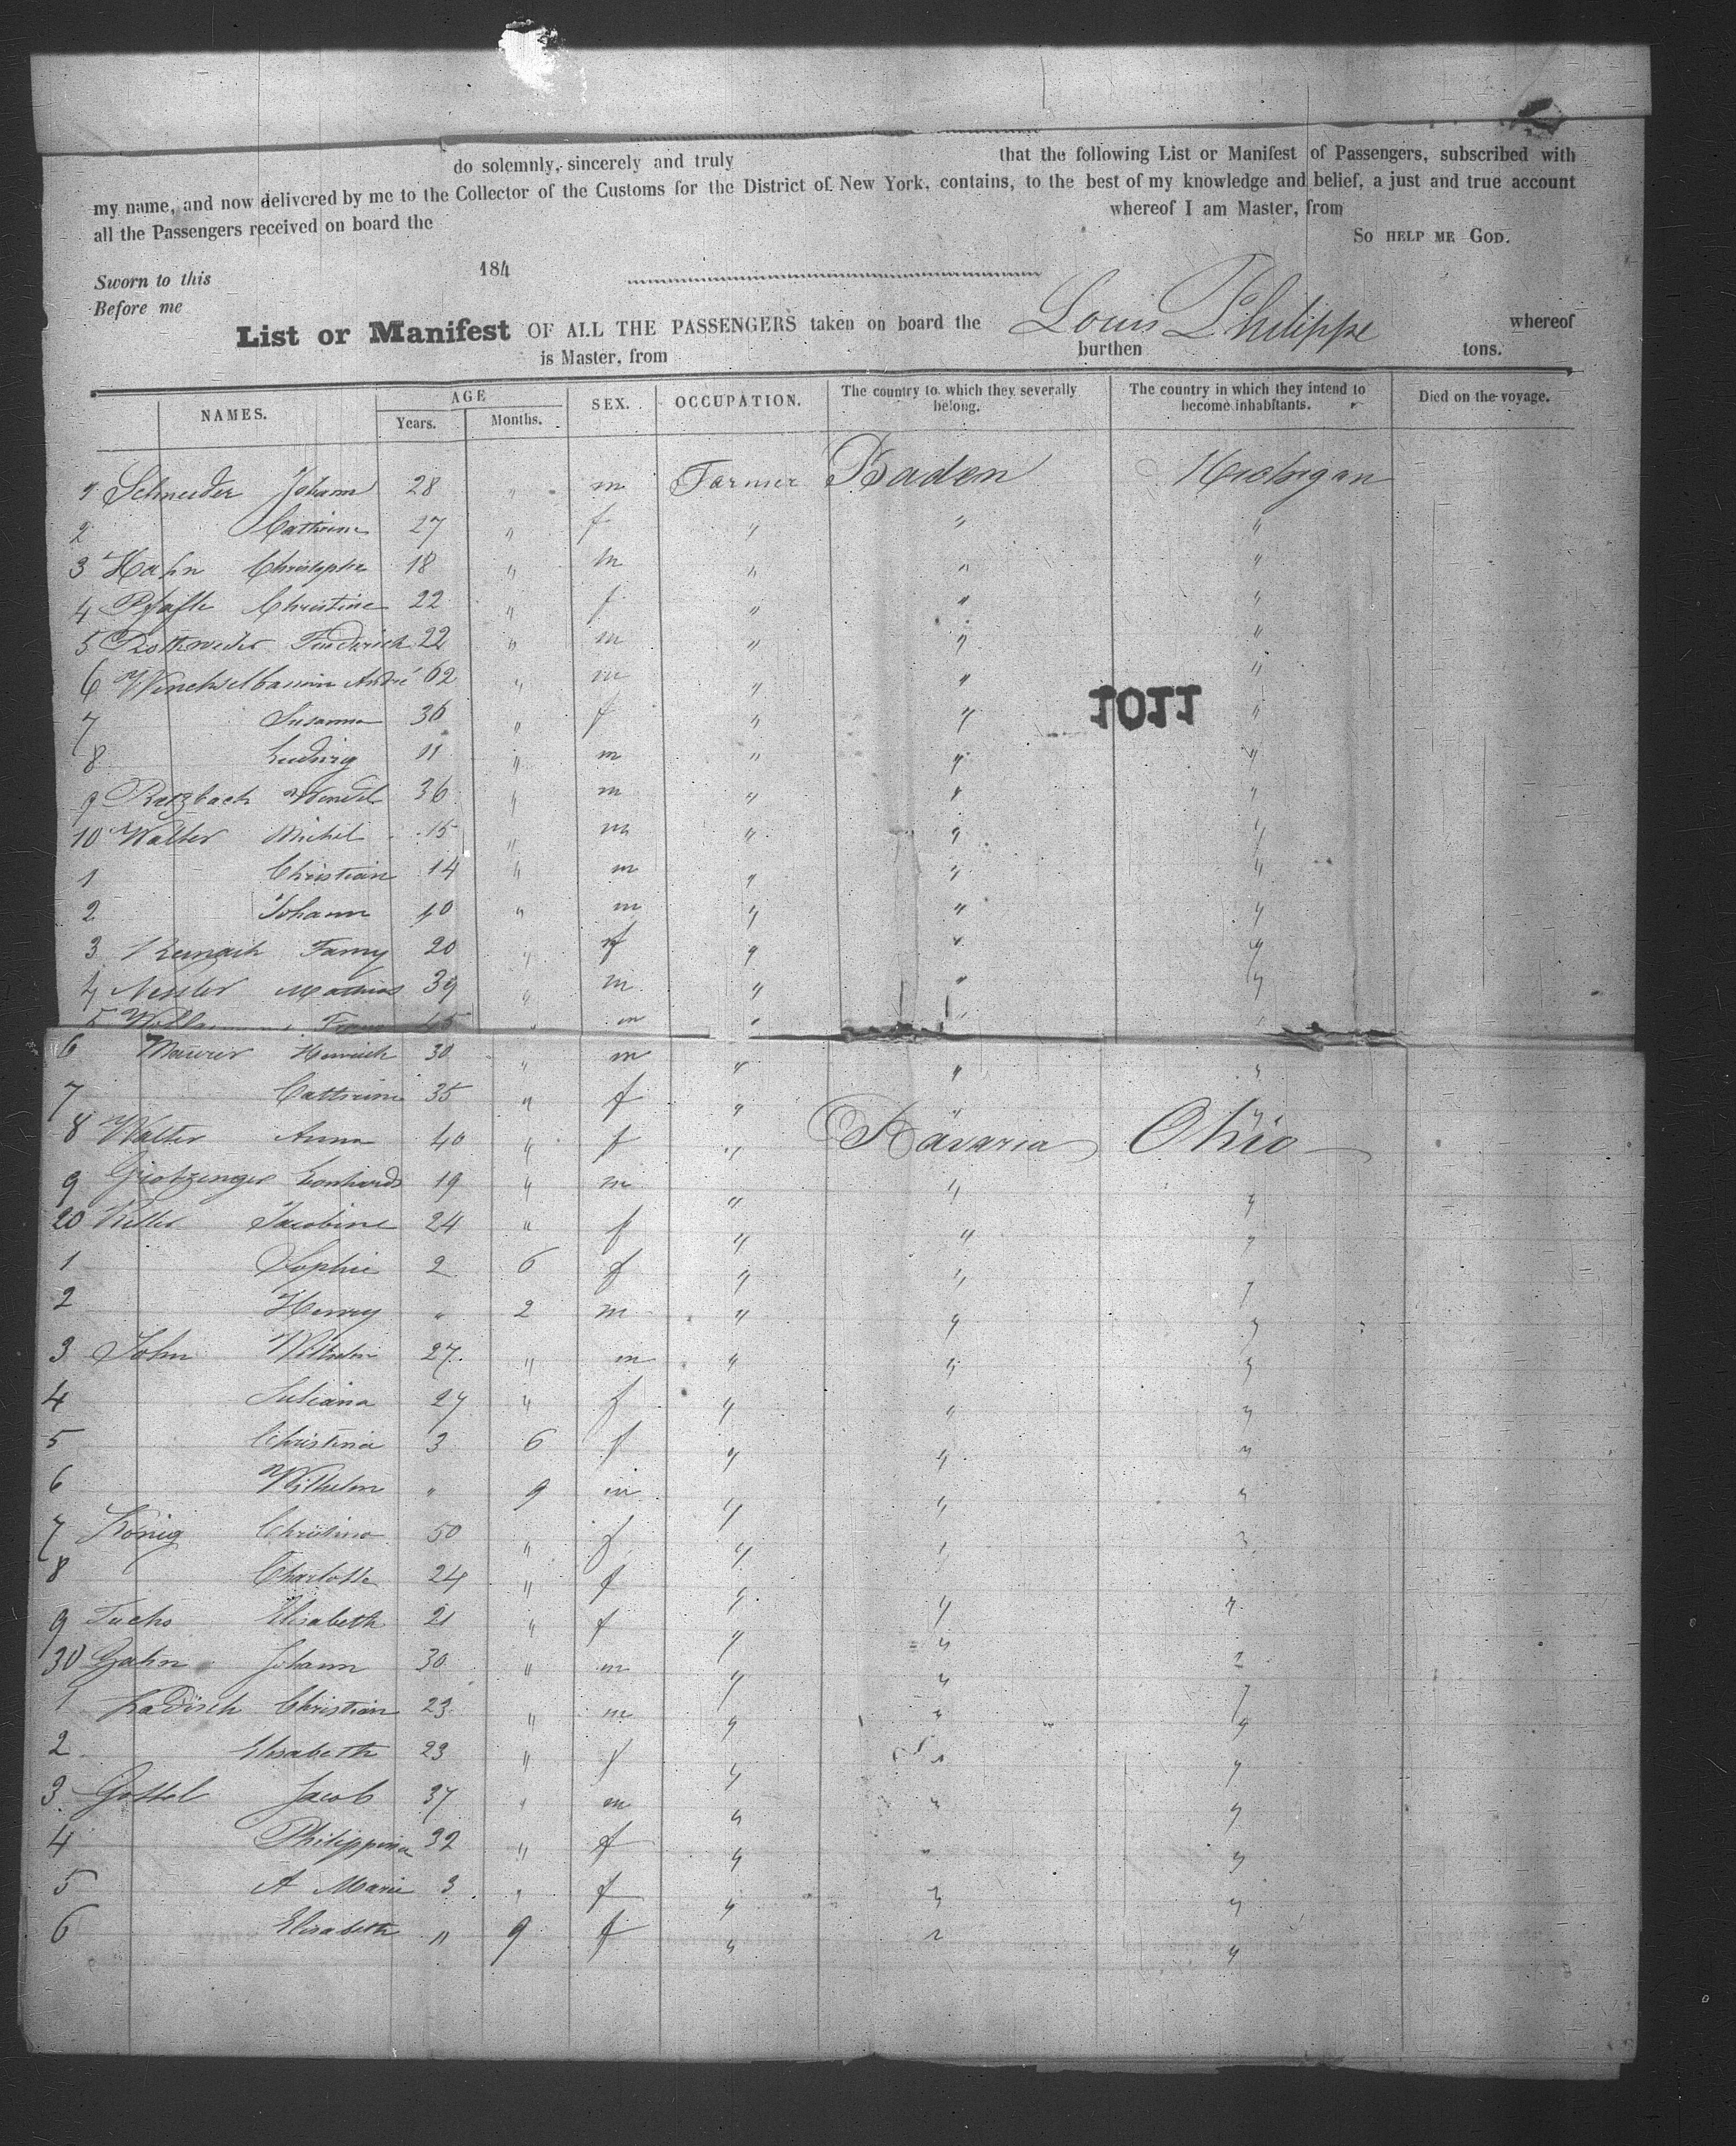 do solemnly, sincerely and truly that the following List or Manifest of Passengers, subscribed with
my name, and now delivered by me to the Collector of the Customs for the District of New York, contains, to the best of my knowledge and belief, a just and true account
all the Passengers received on board the whereof I am Master, from
So help me God.
Sworn to this 184
Before me
List or Manifest OF ALL THE PASSENGERS taken on board the Louis Philippe whereof
is Master, from burthen tons.
NAMES. AGE Years. Months. SEX. OCCUPATION. The country to which they severally belong. The country in which they intend to become inhabitants. Died on the voyage.
1 Schneider Johann 28 " m Farmer Baden Michigan
2 Cathrine 27 " f " " "
3 Hahn Christophe 18 " m " " "
4 Christine 22 " f " " "
5 Friederich 22 " m " " "
6 André 62 " m " " "
7 Susanna 36 " f " " "
1011
8 Ludwig 11 " m " " "
9 Wendel 36 " m " " "
10 Walter Michel 15 " m " " "
1 Christian 14 " m " " "
2 Johann 10 " m " " "
3 Fanny 20 " f " " "
4 Nessler Mathias 39 " m " " "
5 45 " m " " "
6 Maurer Heinrich 30 " m " " "
7 Cathrine 35 " f " " "
8 Walter Anna 40 " f " Bavaria Ohio
9 Grotzinger 19 " m " " "
20 Keller Jacobine 24 " f " " "
1 Sophie 2 6 f " " "
2 Henry " 2 m " " "
3 John Wilhelm 27 " m " " "
4 Juliana 27 " f " " "
5 Christina 3 6 f " " "
6 Wilhelm " 9 m " " "
7 König Christina 50 " f " " "
8 Charlotte 24 " f " " "
9 Elisabeth 21 " f " " "
30 Johann 30 " m " " "
1 Ladisch Christian 23 " m " " "
2 Elisabeth 23 " f " " "
3 Jacob 37 " m " " "
4 Philippina 32 " f " " "
5 A Marie 3 " f " " "
6 Elisabeth " 9 f " " "